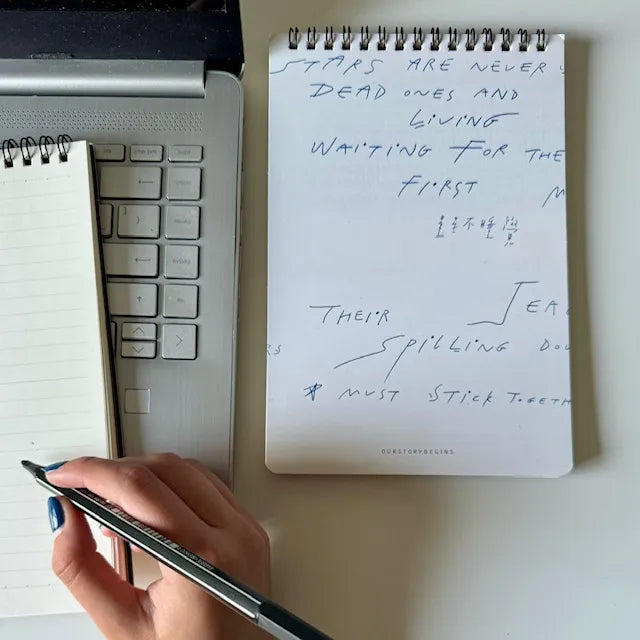 STARS ARE NEVER
DEAD ONES AND
LIVING
WAITING FOR THE
FIRST M
THEIR TEA
RS SPILLING DOW
MUST STICK TOGETH
OURSTORYBEGINS